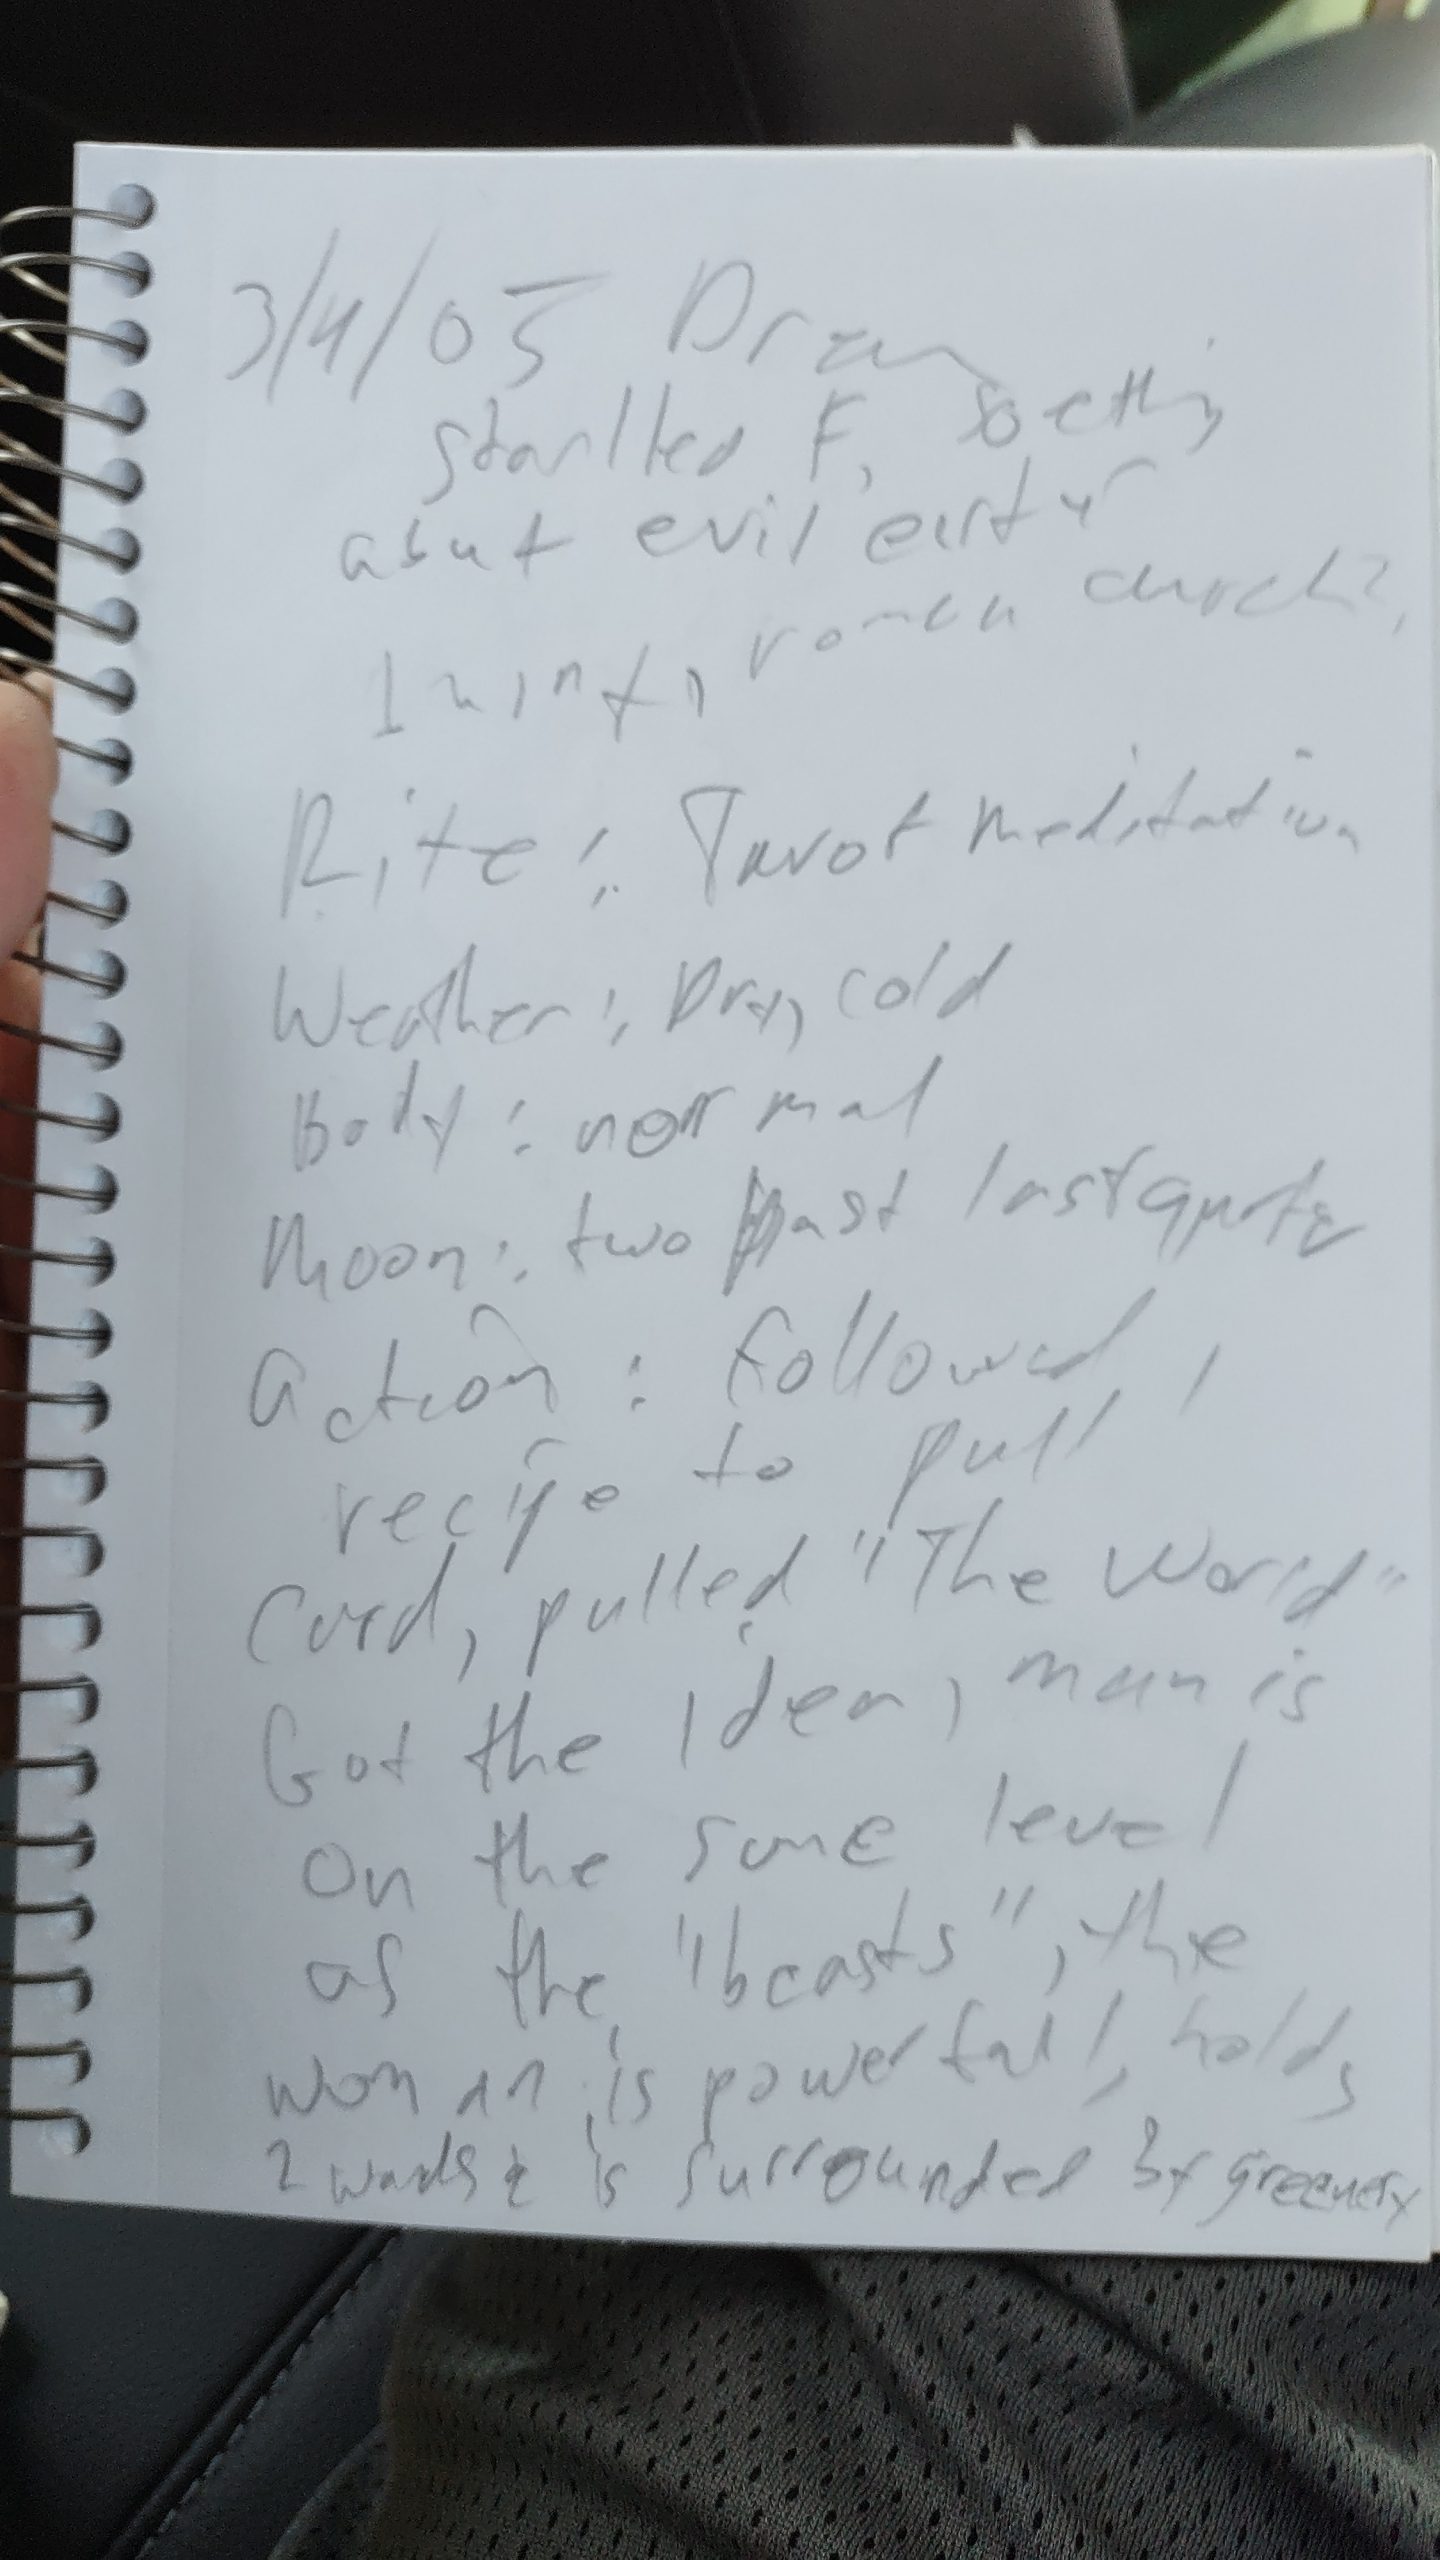 3/4/05 Dream
startled F, soething
about evil entity
roman church?,
Rite: Tarot meditation
Weather: Dry, cold
Body: normal
Moon: two past last quarter
Action: followed
recipe to pull
Card, pulled "The World"
Got the idea, man is
on the same level
as the "beasts", the
woman is powerful, holds
2 wands & is surrounded by greenery